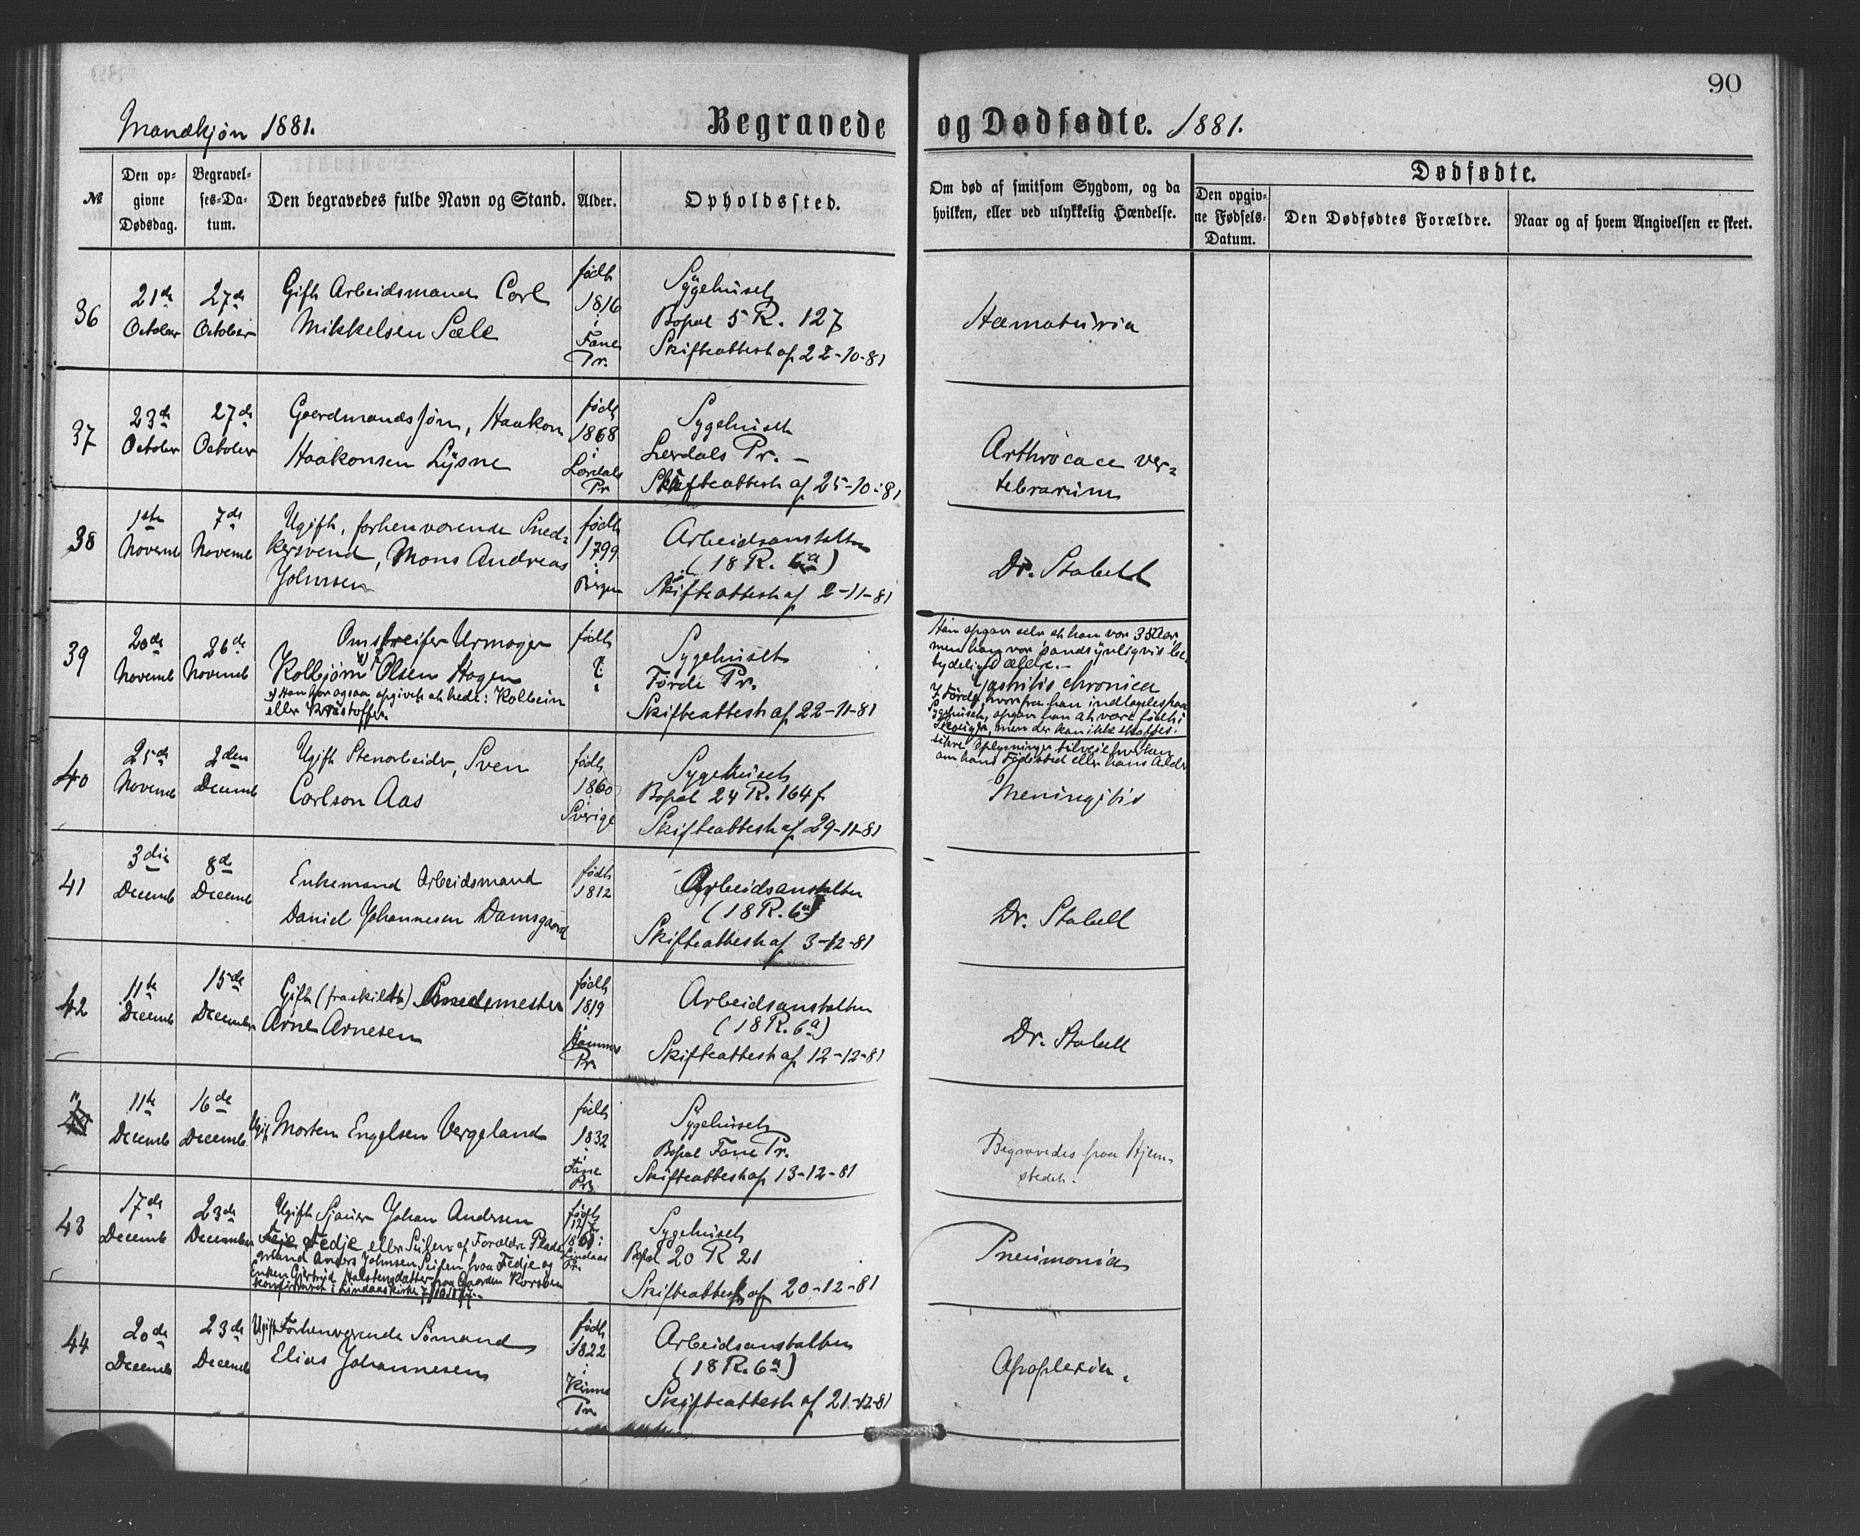 90
Mandkjøn 1881.
Begravede og Dødfødte. 1881.
№
Den opgivne Dødsdag.
Begravelses-Datum.
Den begravedes fulde Navn og Stand.
Alder.
Opholdssted.
Om død af smitsom Sygdom, og da hvilken, eller ved ulykkelig Hændelse.
Dødfødte.
Den opgivne Fødsels-Datum.
Den Dødfødtes Forældre.
Naar og af hvem Angivelsen er skeet.
36
21de October
27de October
Gift Arbeidsmand Carl
Mikkelsen Sæle
født
1816
i
Fane
Pr.
Sygehuset
Bopæl 5 R. 127
Skifteattest af 22-10-81
Hæmaturia
37
23de October
27de October
Gaardmandssøn, Haakon
Haakonsen Lysne
født
1868
i
Lærdals
Pr
Sygehuset
Lærdals Pr. -
Skifteattest af 25-10-81
Arthrocace ver-
tebrarum
38
1ste Novemb
7de Novemb
Ugift, forhenværende Sned-
kersvend, Mons Andreas
Johnsen
født
1799
i
Bergen
Arbeidsanstalten
(18 R. 6a)
Skifteattest af 2-11-81
Dr. Stabell
39
20de Novemb
26de Novemb
Omstreifer Urmager
Kolbjørn Olsen Hagen
x) Han har ogsaa opgivet at hede: Kolbein
eller Kristoffer
født
?
Sygehuset
Førde Pr.
Skifteattest af 22-11-81
Han opgav selv at han var 35 Aar,
men han var sandsynligvis be-
tydeligt ældre. -
Gastritis chronica
I Førde, hvorfra han indlagdes paa
Sygehuset, opgav han at være født i
men der kan ikke skaffes
sikre Oplysninger tilveie hverken
om hans Fødested eller hans Alder
40
25de Novemb
2den Decemb
Ugift Stenarbeider, Sven
Carlson Aas
født
1860
Sverige
Sygehuset
Bopæl 24 R. 164f
Skifteattest af 29-11-81
Meningitis
41
3die Decemb
8de Decemb
Enkemand Arbeidsmand
Daniel Johannesen Damsgaard
født
1812
Arbeidsanstalten
(18 R. 6a)
Skifteattest af 3-12-81
Dr. Stabell
42
11te Decemb
15de Decemb
Gift (fraskilt)
Arne Arnesen
født
1819
i
Hammers
Pr
Arbeidsanstalten
(18 R. 6a)
Skifteattest af 12-12-81
Dr. Stabell
"
11te Decemb
16de Decemb
Ugift Morten Engelsen Vergeland
født
1832
i
Fane
Pr
Sygehuset
Bopæl Fane Pr.
Skifteattest af 13-12-81
Begravedes fra Hjem-
stedet.
43
17de Decemb
23de December
Ugift Sjauer Johan Andersen
Feje Fedje eller Seifen af Forældre Plads-
mand Anders Johnsen Seifen fra Fedje og
Enken Gjertrud Halstensdatter fra Gaarden
konfirmeret i Lindaas Kirke
født
12/7
i
Lindaas
Pr.
Sygehuset
Bopæl 20 R 21
Skifteattest af 20-12-81
Pneumonia
44
20de Decemb
23de Decemb
Ugift Forhenværende Sømand
Elias Johannesen
født
1822
i
Kinns
Pr.
Arbeidsanstalten
(18 R. 6a)
Skifteattest af 21-12-81
Apoplexia.